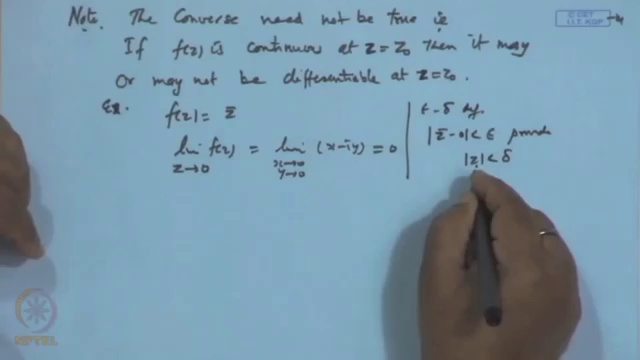 Note. The Converse need not be true ie
If f(z) is continuous at z = z₀ then it may
or may not be differentiable at z = z₀.
Ex. f(z) = z̄
lim f(z) = lim (x - iy) = 0
z→0 x→0
y→0
ε-δ def.
|z̄ - 0| < ε provide
|z| < δ
© CET
I.I.T. KGP
NPTEL